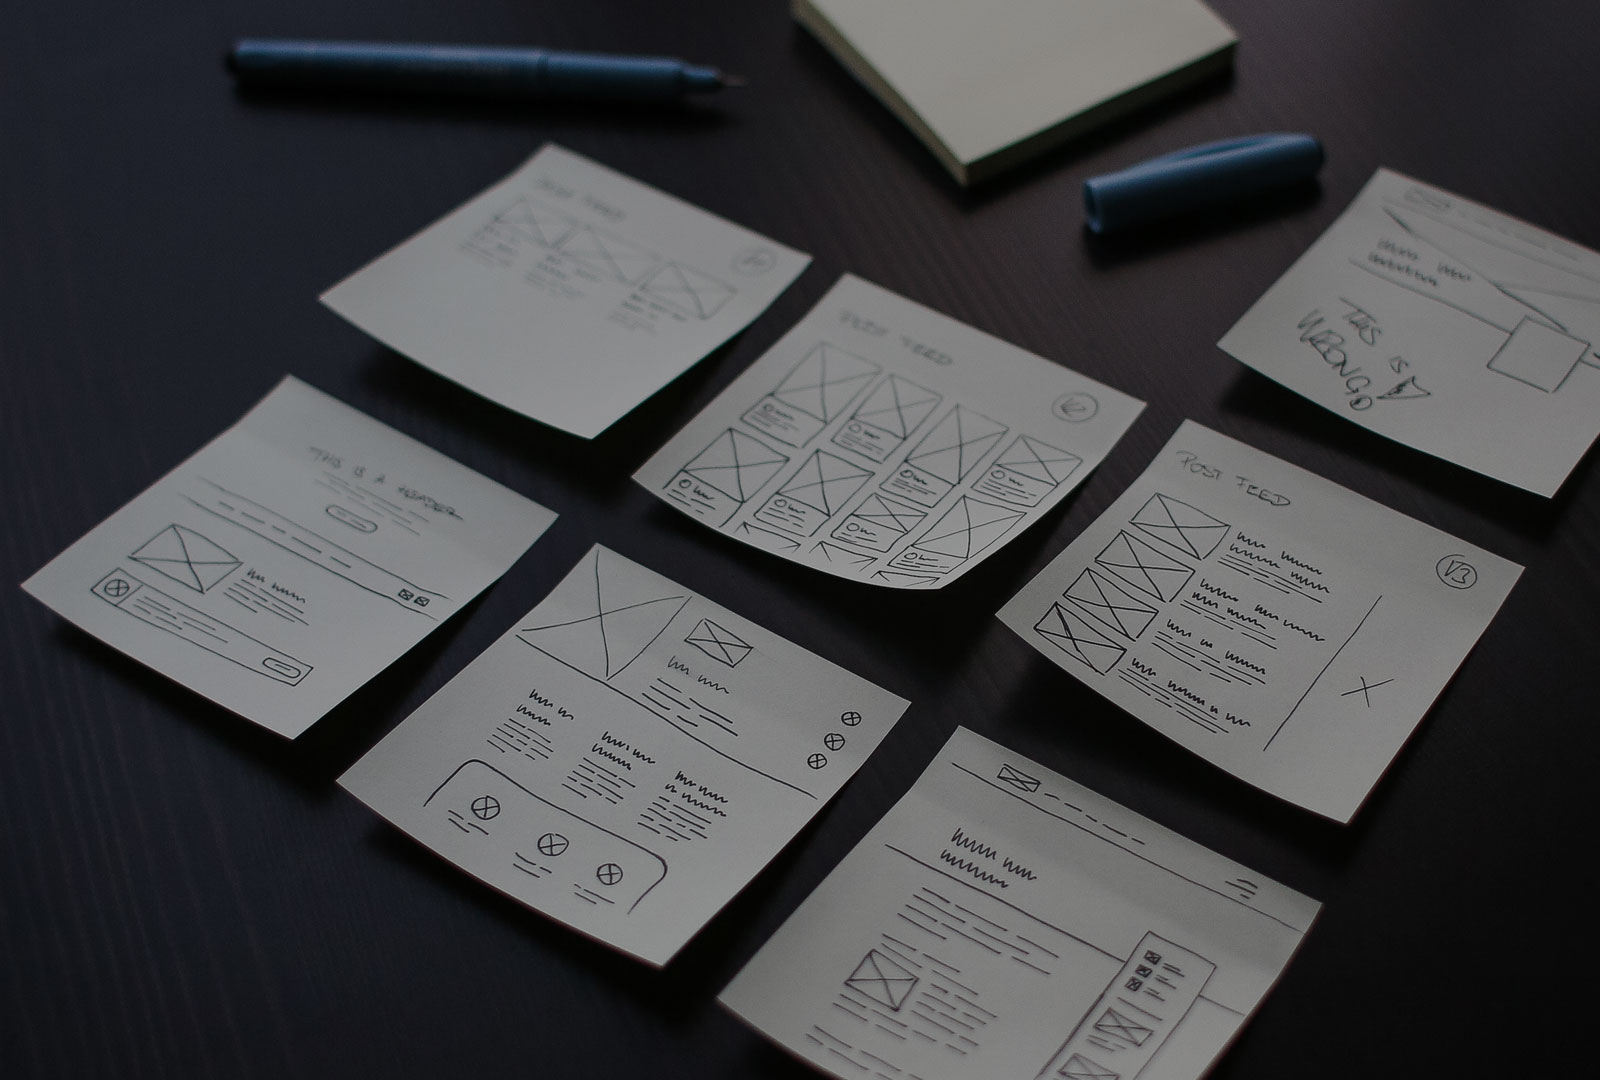 POST FEED
V1
POST FEED
V2
THIS IS
WRONG!
THIS IS A HEADER
POST FEED
V3